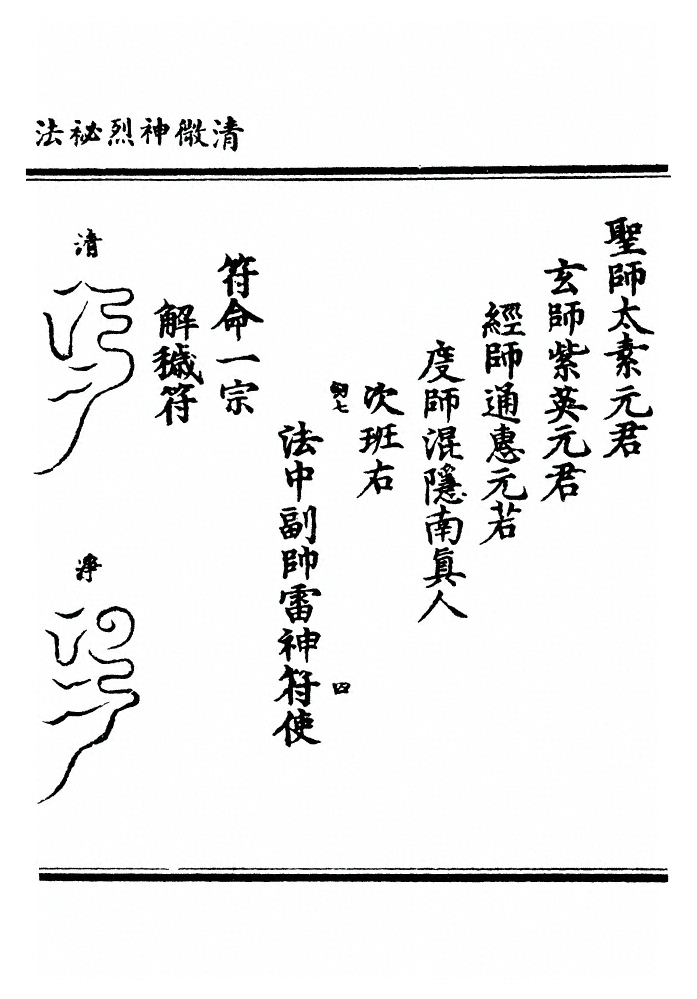 清微神烈祕法
聖師太素元君
玄師紫英元君
經師通惠元若
度師混隱南眞人
次班右
七
四
法中副帥雷神符使
符命一宗
解穢符
清
淨